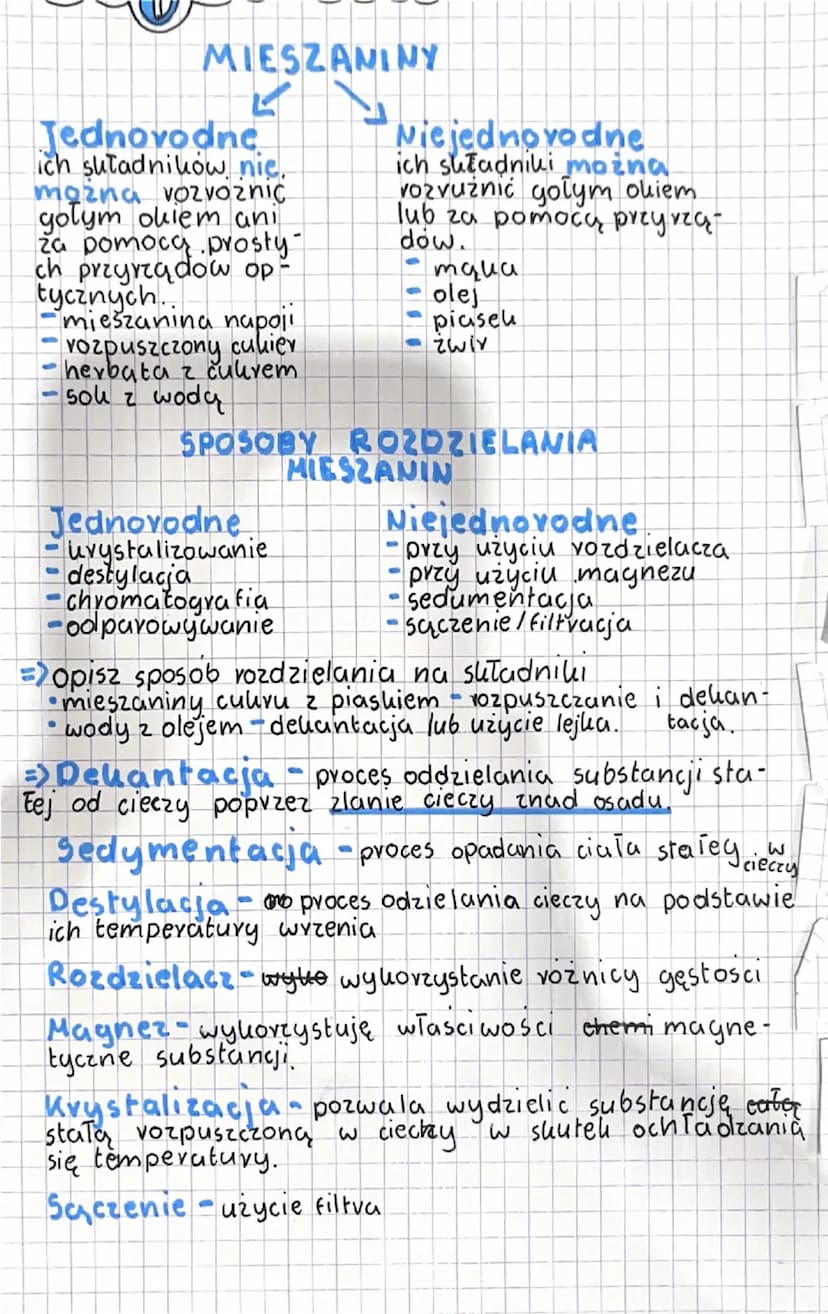 MIESZANINY
Jednorodne
ich składników nie
można rozróżnić
gołym okiem ani
za pomocą prosty-
ch przyrządów op-
tycznych.
- mieszanina napoji
- rozpuszczony cukier
- herbata z cukrem
- sok z wodą
Niejednorodne
ich składniki można
rozrużnić gołym okiem
lub za pomocą przyrzą-
dów.
- mąka
- olej
- piasek
- żwir
SPOSOBY ROZDZIELANIA
MIESZANIN
Jednorodne
- krystalizowanie
- destylacja
- chromatografia
- odparowywanie
Niejednorodne
- przy użyciu rozdzielacza
- przy użyciu magnezu
- sedumentacja
- sączenie/filtracja
=> opisz sposób rozdzielania na składniki
• mieszaniny cukru z piaskiem - rozpuszczanie i dekan-
tacja.
• wody z olejem - dekantacja lub użycie lejka.
=> Dekantacja - proces oddzielania substancji sta-
łej od cieczy poprzez zlanie cieczy znad osadu.
Sedymentacja - proces opadania ciała stałeg w
cieczy
Destylacja - proces odzielania cieczy na podstawie
ich temperatury wrzenia
Rozdzielacz - wyko wykorzystanie różnicy gęstości
Magnez - wykorzystuję właściwości chemi magne-
tyczne substancji.
Krystalizacja - pozwala wydzielić substancję całą
stałą rozpuszczoną w cieczy w skutek ochładzania
się temperatury.
Sączenie - użycie filtra